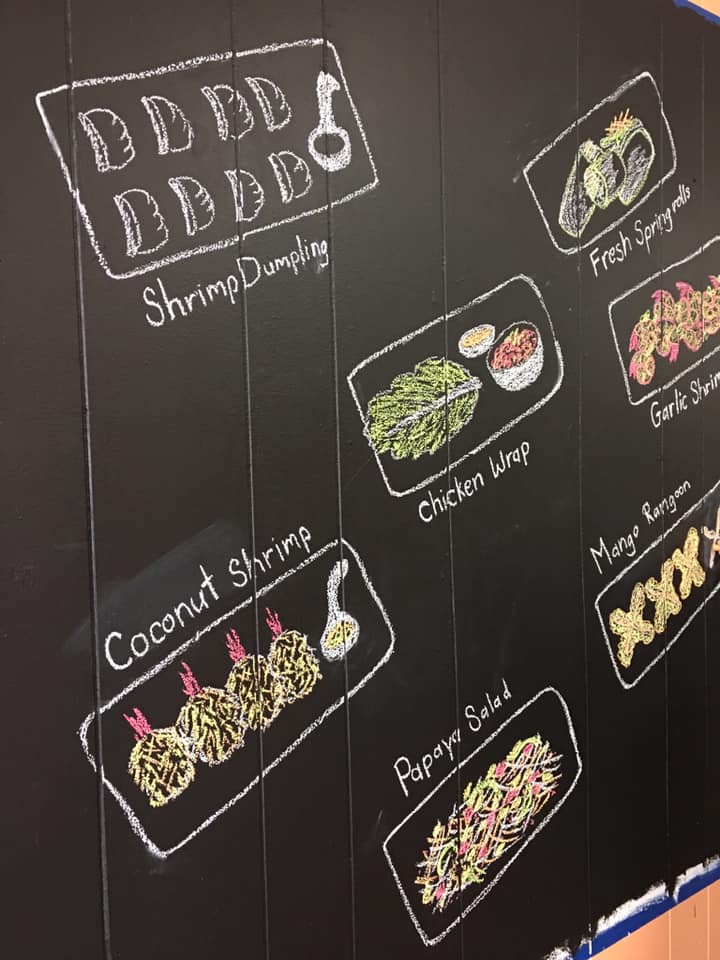 Shrimp Dumpling
Fresh Spring rolls
Chicken Wrap
Garlic Shrim
Mango Rangoon
Coconut Shrimp
Papaya Salad